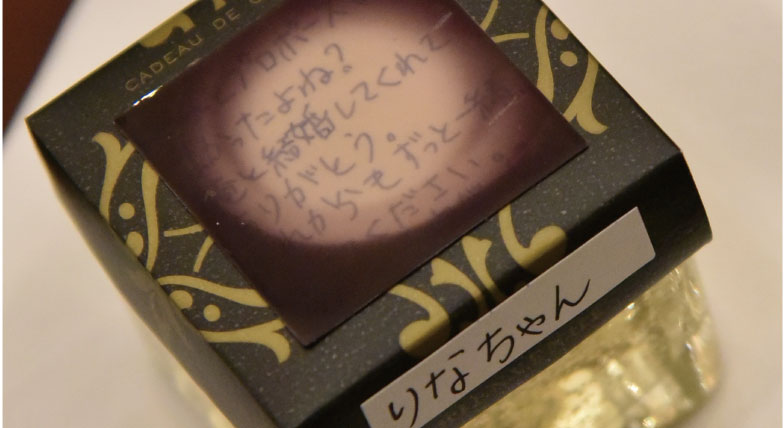 CADEAU DE
プロポーズ
ったよね?
と結婚してくれて
りがとう。
れからもずっと一緒
ください。
りなちゃん